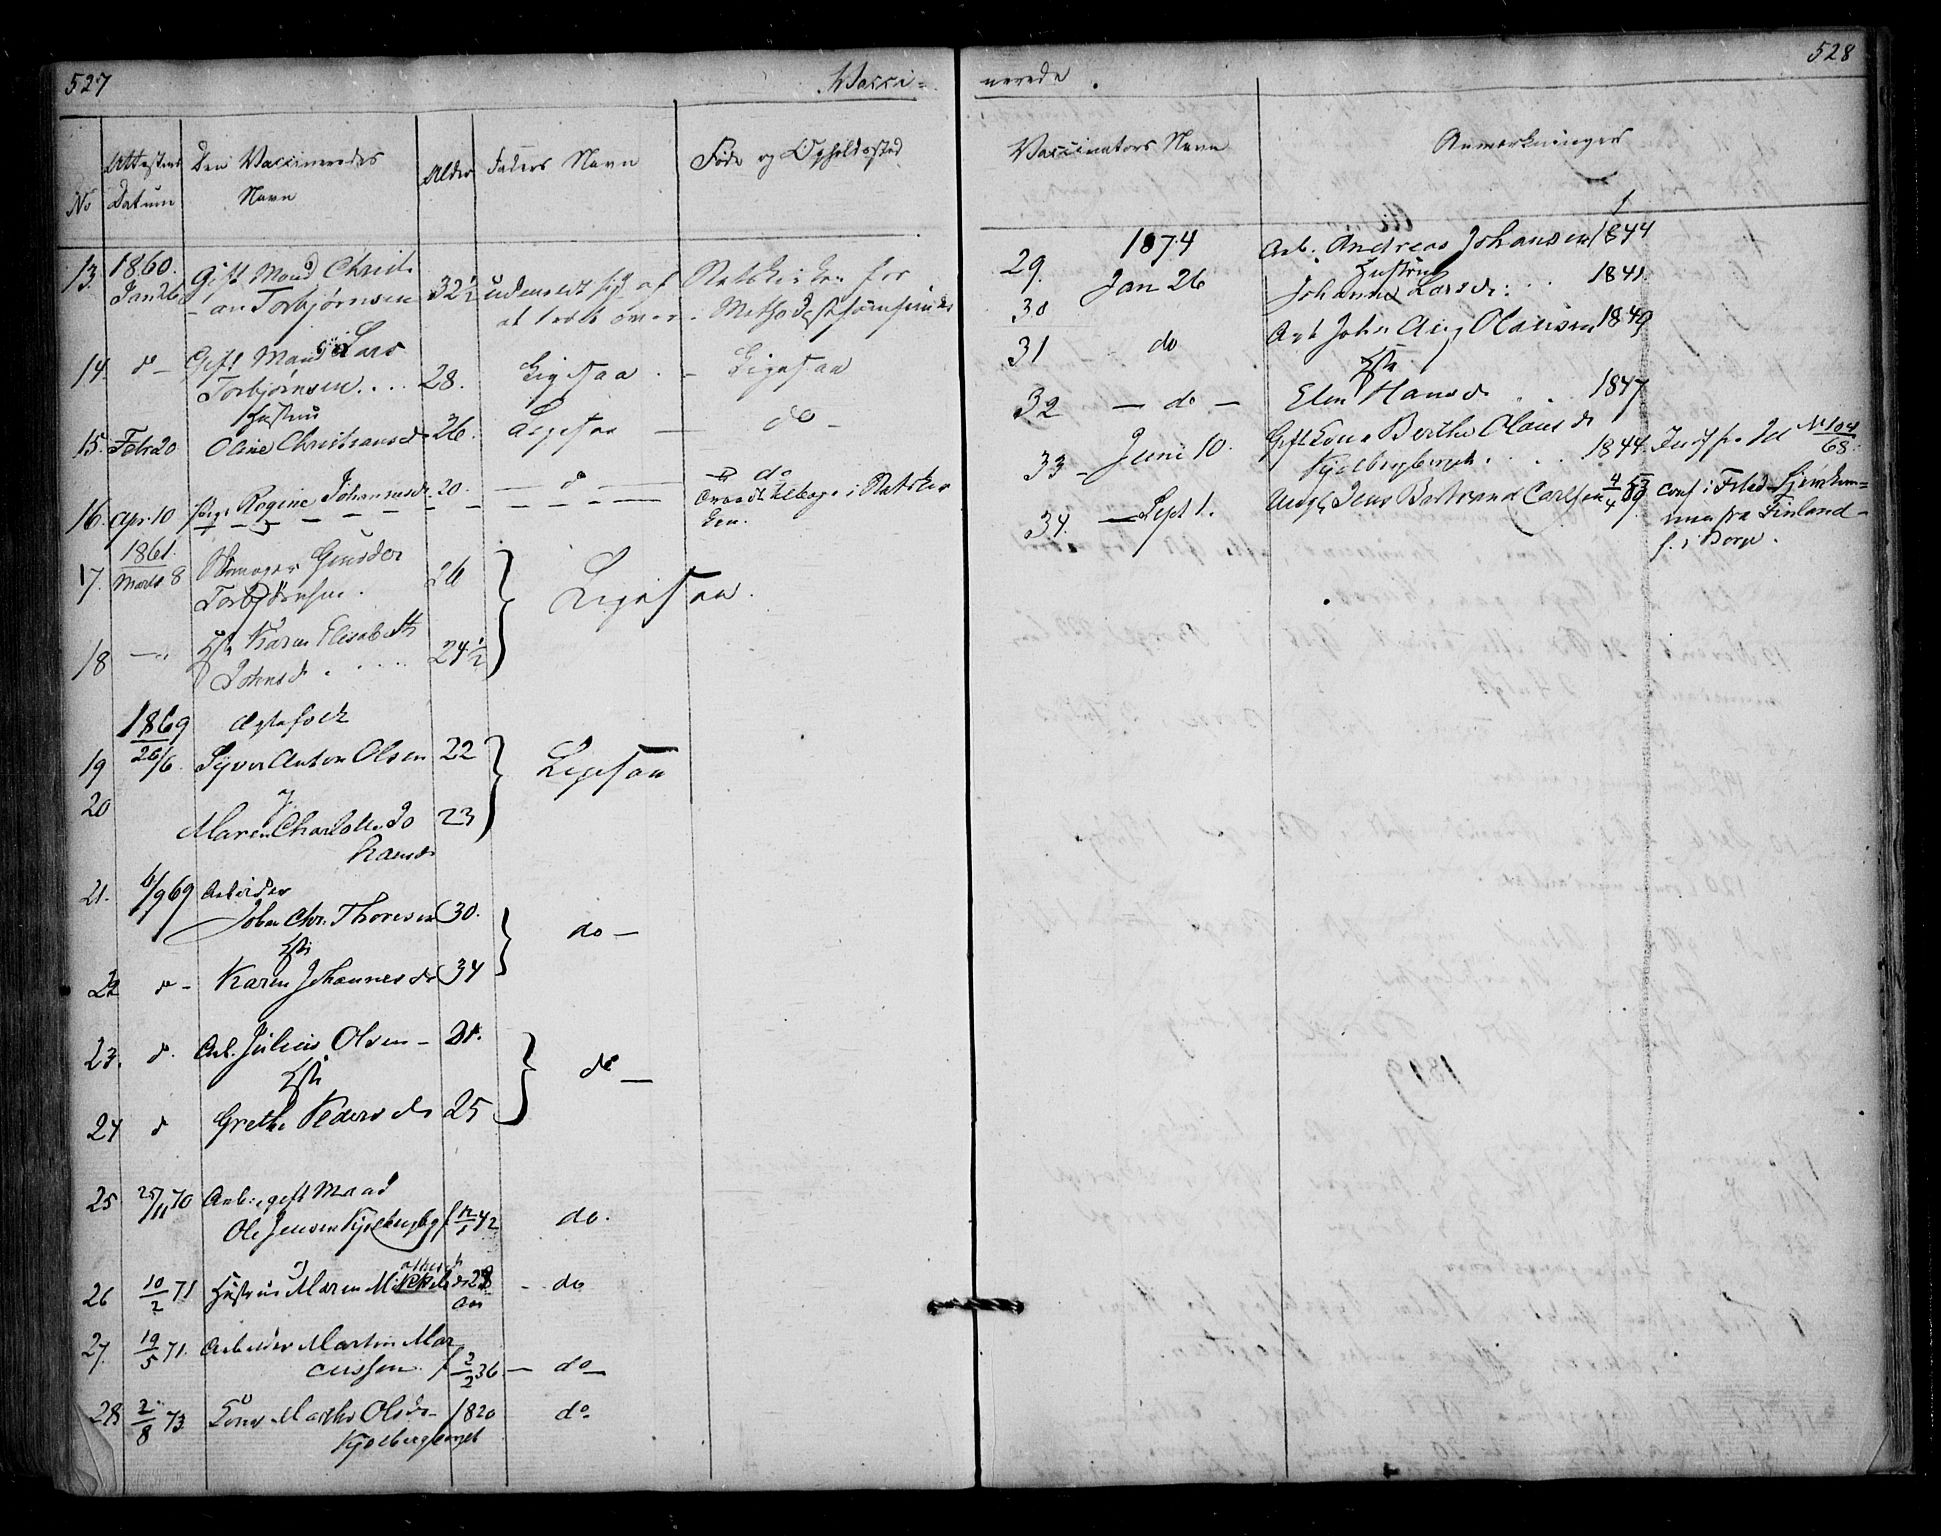 527
Vacci=
No
Attestens
Datum
Den Vaccineredes
Navn
Alder
Faders Navn
Føde og Opholdssted
13.
1860.
Jan 26
Gift Mand Christi
-an Torbjørnsen
32½
udmeldt sig af
at træde over
Statskirken for
Methodistsamfundet
14.
d -
Gift Mand Lars
Torbjørnsen . . .
28.
Ligesaa
Ligesaa
15.
Febr 20
Hustru
Oline Christiansdr
26.
Ligesaa
do -
16.
Apr. 10
Pige Regine Johannesdr
20.
— d —
do
tilbage i Statskir
ken.
17.
1861.
Marts 8
Skomager Gunder
Torbjørnsen.
26
Ligesaa.
18
—"
Hst. Karen Elisabeth
Johnsd . . . .
24½
1869
26/6
Ægtefolk
19
Syver Anton Olsen
22
Ligesaa
20
og
Maren Charlotte Jo
hansdr
23
21.
6/9 69
Arbeider
Johan Chr. Thoresen
30.
do —
Hst.
22
d -
Karen Johannesdr
34
23.
d.
Arb. Julius Olsen -
21.
do —
Hst.
24
d
Grethe Pedersdr
25
25
25/11 70
Arb., gift Mand
Ole Jensen Kjølbergbg
f. 12/1 42
do.
26
10/2 71
Hustru Maren Mikkelsdr
28
Aar
- do
27.
19/5 71.
Arbeider Martin Mar
cussen.
f 2/2 36
— do —
28
2/8 73
Kone Marthe Olsdr -
Kjølbergbraget
1820
do
528
nerede .
Vaccinators Navn
Anmerkninger
1874
29.
Jan 26
Arb. Andreas Johansen 1844
30
Hustru
Johanne Larsdr . . . 1841.
31
do
Arb Johan Aug Olausen 1849
Hst.
32
— do —
Elen Hansdr . . 1847
33 -
Juni 10.
Gift Kone Berthe Olausdr
Kjølbergberget . . . . 1844.
Indf fra Id No 104/68.
34.
— Sept 1.
Ungk Jens Bertrand Carlsen 4/4 59
conf i Fred
fra Finland -
f. i Borge.